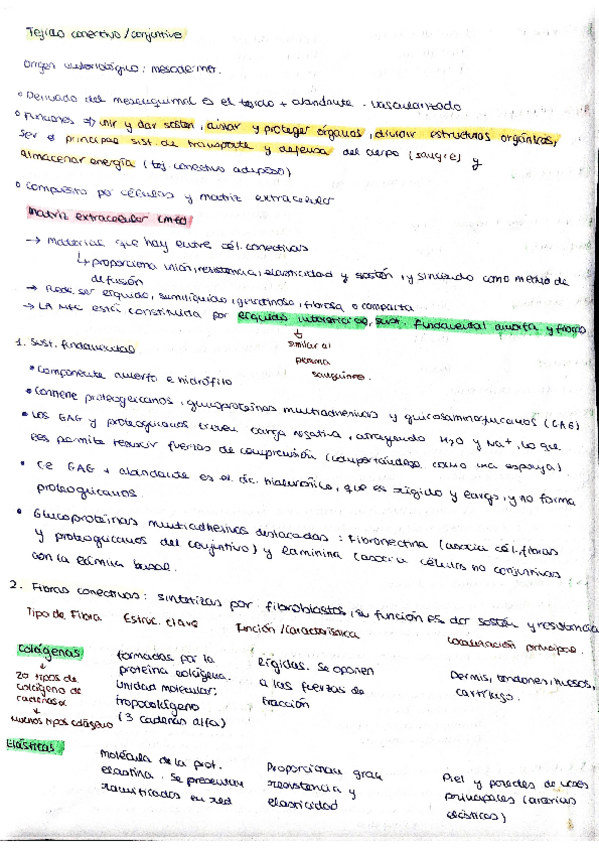 Tejido conectivo / conjuntivo
Origen embriológico: mesodermo.
• Derivado del mesenquimal es el tejido + abundante. Vascularizado
• Funciones → unir y dar sostén, aislar y proteger órganos, dividir estructuras orgánicas,
ser el principal sist. de transporte y defensa del cuerpo (sangre) y
almacenar energía (tej. conectivo adiposo)
• Compuesto por células y matriz extracelular
Matriz extracelular (MEC)
→ material que hay entre cél. conectivas
↳ proporciona unión, resistencia, elasticidad y sostén, y sirviendo como medio de
difusión
→ Puede ser líquido, semilíquido, gelatinoso, fibrosa o compacta
→ La MEC está constituida por líquido intersticial, sust. fundamental amorfa y fibras
↓
similar al
plasma
sanguíneo.
1. Sust. fundamental
• Componente amorfo e hidrófilo
• Contiene proteoglicanos, glucoproteínas multiadhesivas y glucosaminoglucanos (GAG)
• Los GAG y proteoglicanos tienen carga negativa, atrayendo H2O y Na+, lo que
les permite resistir fuerzas de compresión (comportándose como una esponja).
• El GAG + abundante es el ác. hialurónico, que es rígido y largo, y no forma
proteoglicanos.
• Glucoproteínas multiadhesivas destacadas: Fibronectina (asocia cél, fibras
y proteoglicanos del conjuntivo) y laminina (asocia células no conjuntivas
con la lámina basal.
2. Fibras conectivas: sintetizas por fibroblastos, su función es dar sostén y resistencia
Tipo de Fibra Estruc. clave Función / característica Localización principal.
Colágenas formadas por la Rígidas. Se oponen Dermis, tendones, huesos,
↓ proteína colágena. a las fuerzas de cartílago.
20 tipos de Unidad molecular: tracción
colágeno de tropocolágeno
cadenas α (3 cadenas alfa)
↓
muchos tipos colágeno
Elásticas Molécula de la prot. Proporcionan gran Piel y paredes de vasos
elastina. Se presentan resistencia y principales (arterias
ramificados en red elasticidad elásticas)